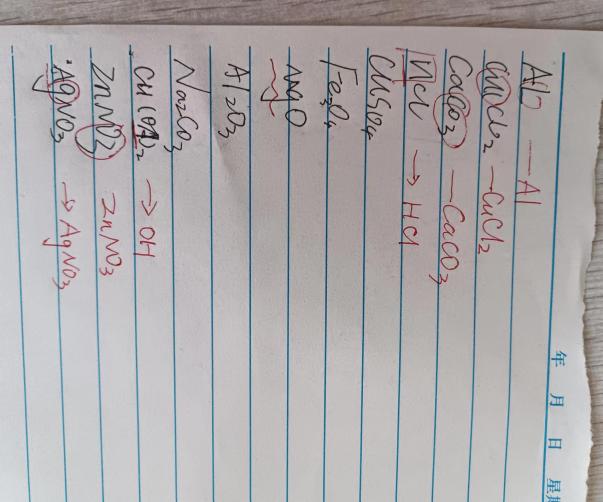 Al — Al
CuCl₂ — CuCl₂
CaCO₃ — CaCO₃
HCl → HCl
CuSO₄
Fe₃O₄
MgO
Al₂O₃
Na₂CO₃
Cu(OH)₂ → OH
ZnNO₃ ZnNO₃
AgNO₃ → AgNO₃
年 月 日 星期